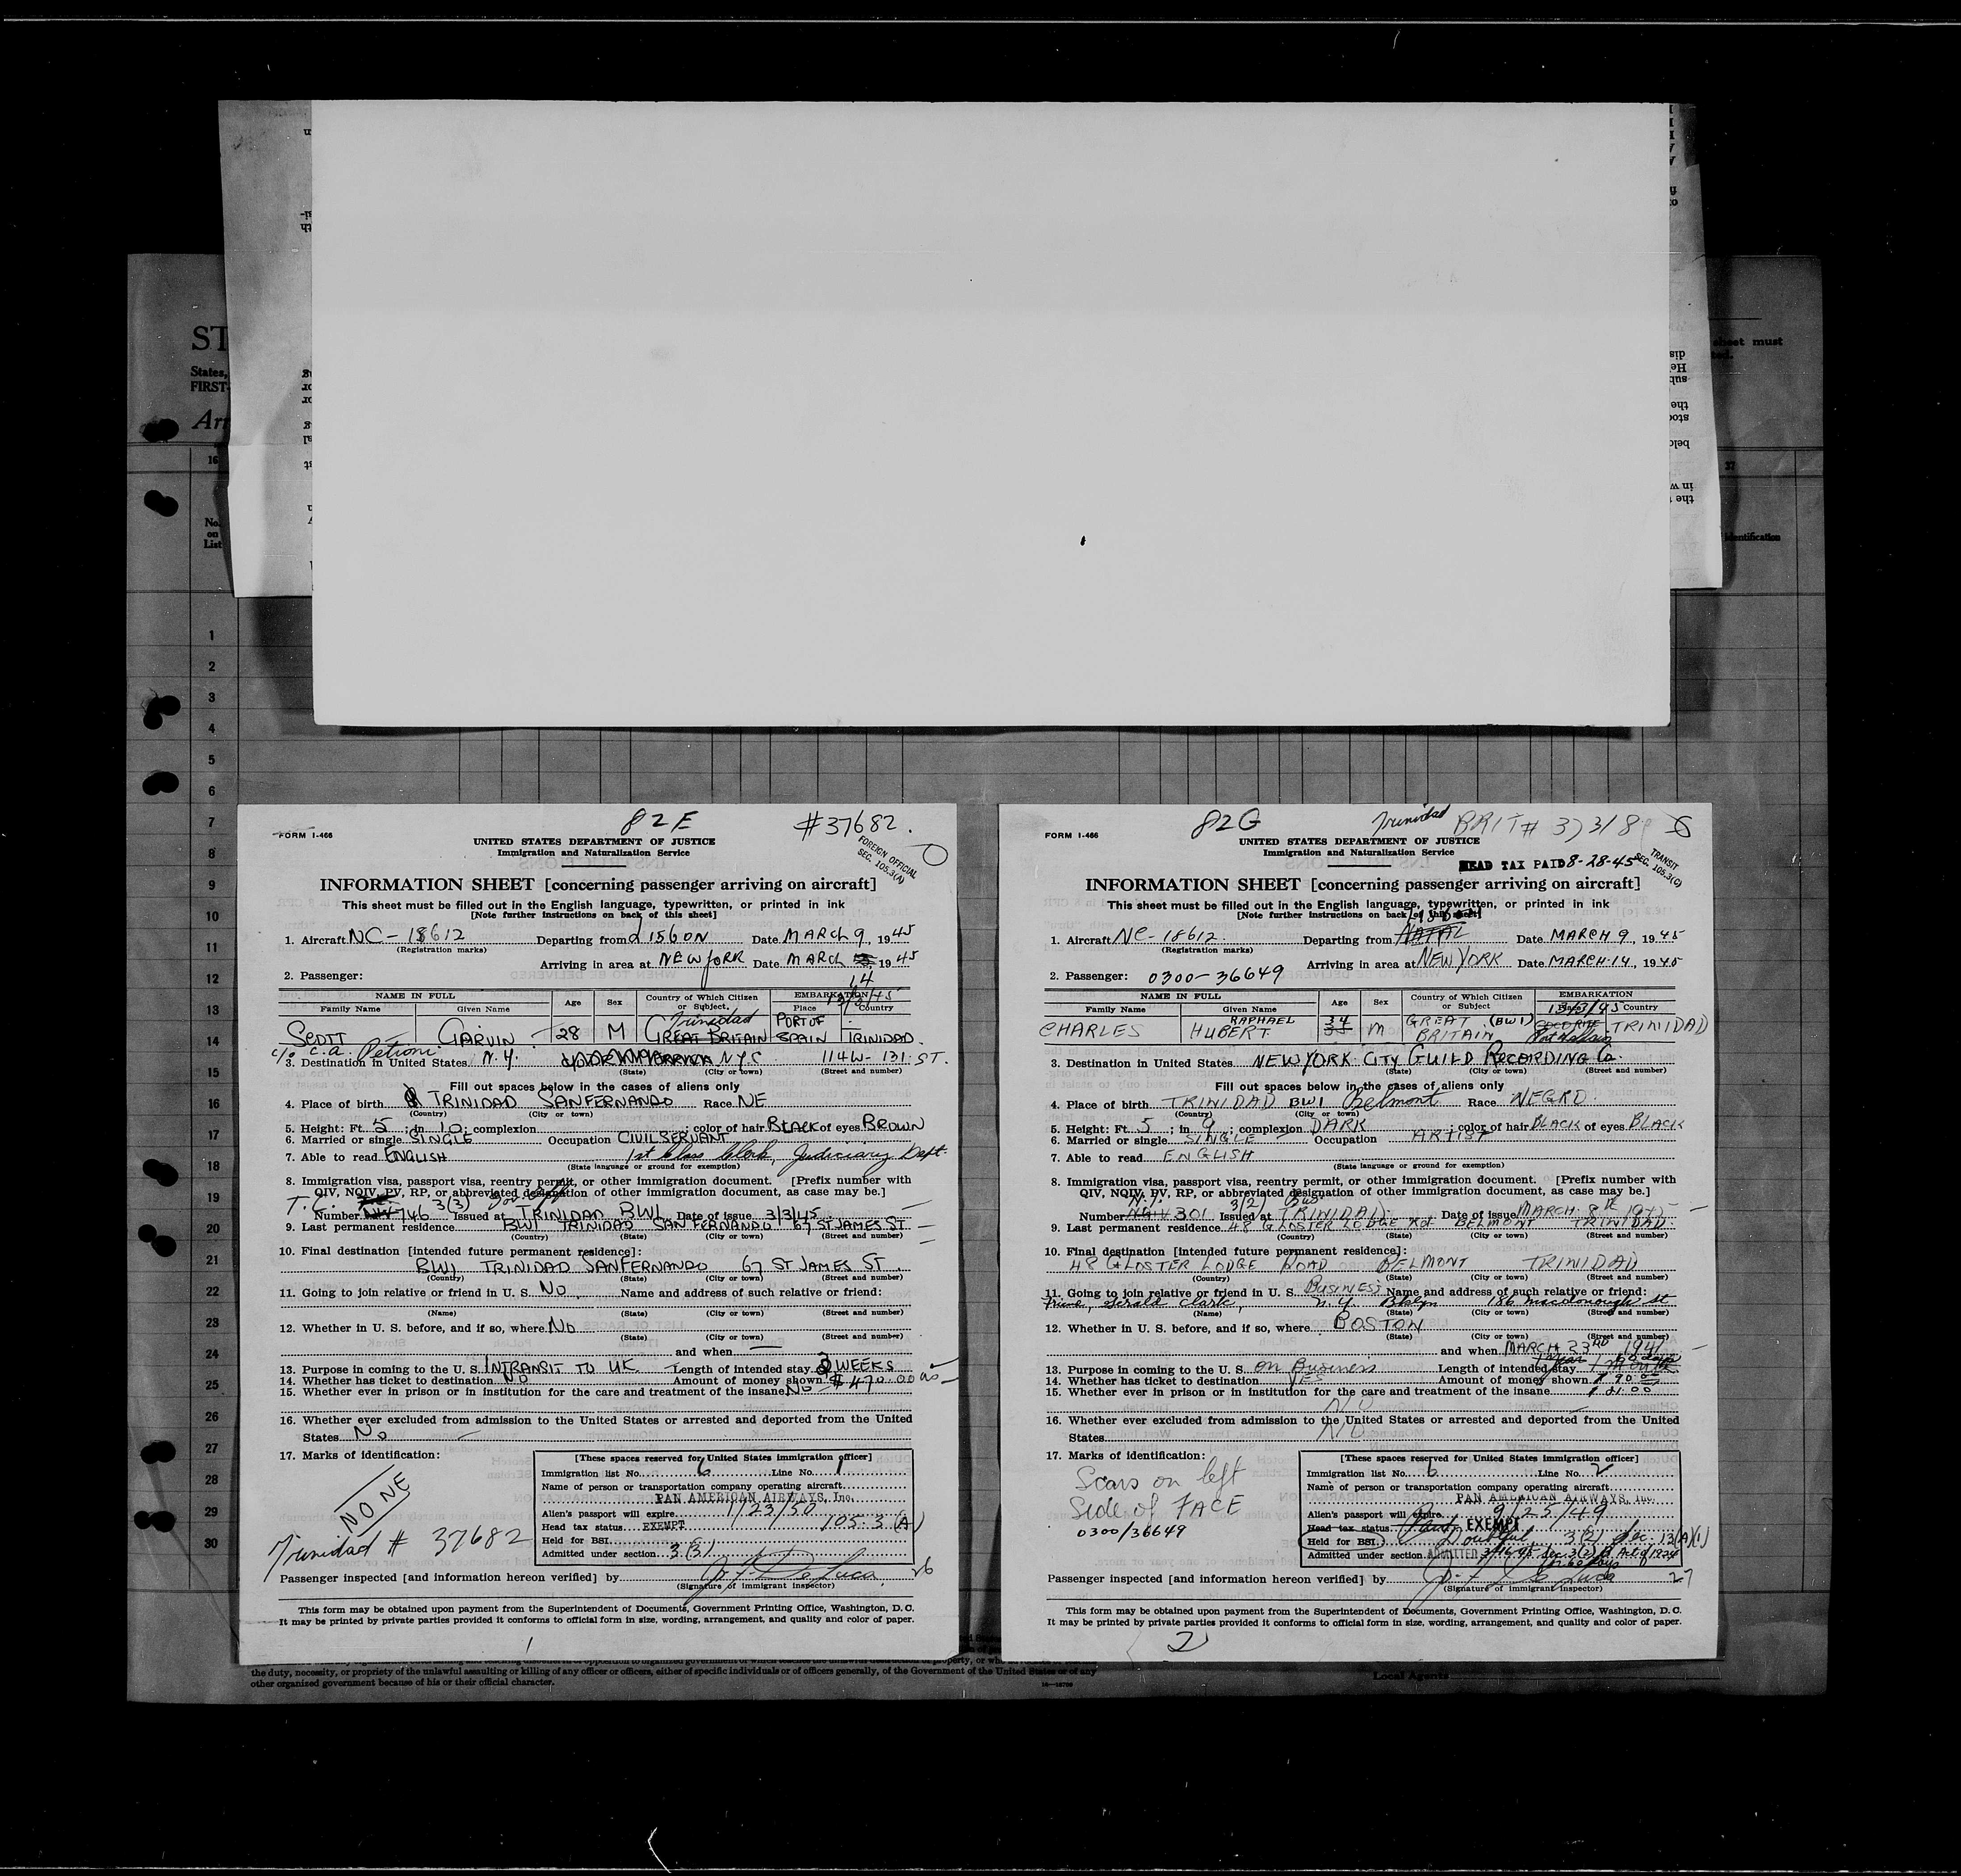 ST
States,
FIRST-
sheet must
16
37
No.
on
List
identification
1
2
3
4
5
6
7
8
9
10
11
12
13
14
15
16
17
18
19
20
21
22
23
24
25
26
27
28
29
30
82E #37682.
FORM I-466
UNITED STATES DEPARTMENT OF JUSTICE
Immigration and Naturalization Service
FOREIGN OFFICIAL
SEC. 105.3(A)
INFORMATION SHEET [concerning passenger arriving on aircraft]
This sheet must be filled out in the English language, typewritten, or printed in ink
[Note further instructions on back of this sheet]
1. Aircraft NC-18612 Departing from LISBON Date MARCH 9, 1945
(Registration marks)
Arriving in area at NEW YORK Date MARCH 14 1945
2. Passenger:
NAME IN FULL Age Sex Country of Which Citizen or Subject. EMBARKATION
Family Name Given Name Place Country
SCOTT GARVIN 28 M Trinidad GREAT BRITAIN PORT OF SPAIN TRINIDAD.
c/o C.A. Petioni
3. Destination in United States N.Y. N.Y.C. 114 W- 131. ST.
(State) (City or town) (Street and number)
Fill out spaces below in the cases of aliens only
4. Place of birth TRINIDAD SAN FERNANDO Race NE
(Country) (City or town)
5. Height: Ft. 5; in 10; complexion ; color of hair BLACK of eyes BROWN
6. Married or single SINGLE Occupation CIVIL SERVANT
7. Able to read ENGLISH 1st Class Clerk, Judiciary Dept.
(State language or ground for exemption)
8. Immigration visa, passport visa, reentry permit, or other immigration document. [Prefix number with
QIV, NQIV, PV, RP, or abbreviated designation of other immigration document, as case may be.]
Number 746 3(3) Issued at TRINIDAD BWI Date of issue 3/3/45
9. Last permanent residence BWI TRINIDAD SAN FERNANDO 67 ST JAMES ST.
(Country) (State) (City or town) (Street and number)
10. Final destination [intended future permanent residence]:
BWI TRINIDAD SAN FERNANDO 67 ST JAMES ST.
(Country) (State) (City or town) (Street and number)
11. Going to join relative or friend in U. S. NO Name and address of such relative or friend:
(Name) (State) (City or town) (Street and number)
12. Whether in U. S. before, and if so, where NO
(State) (City or town) (Street and number)
and when —
13. Purpose in coming to the U. S. INTRANSIT TO UK Length of intended stay 3 WEEKS
14. Whether has ticket to destination NO Amount of money shown $470.00
15. Whether ever in prison or in institution for the care and treatment of the insane NO
16. Whether ever excluded from admission to the United States or arrested and deported from the United
States NO
17. Marks of identification:
NONE
Trinidad # 37682
[These spaces reserved for United States immigration officer]
Immigration list No. 6 Line No. 1
Name of person or transportation company operating aircraft
PAN AMERICAN AIRWAYS, Inc.
Alien's passport will expire 1/23/50
Head tax status EXEMPT 105.3 (A)
Held for BSI
Admitted under section 3(3)
Passenger inspected [and information hereon verified] by J. F. De Luca 26
(Signature of immigrant inspector)
This form may be obtained upon payment from the Superintendent of Documents, Government Printing Office, Washington, D. C.
It may be printed by private parties provided it conforms to official form in size, wording, arrangement, and quality and color of paper.
1
82G Trinidad BRIT #
FORM I-466
UNITED STATES DEPARTMENT OF JUSTICE
Immigration and Naturalization Service
HEAD TAX PAID 8-28-45
TRANSIT
SEC. 105.3(C)
INFORMATION SHEET [concerning passenger arriving on aircraft]
This sheet must be filled out in the English language, typewritten, or printed in ink
[Note further instructions on back of this sheet]
Lisbon
1. Aircraft NC-18612 Departing from NATAL Date MARCH 9, 1945
(Registration marks)
Arriving in area at NEW YORK Date MARCH 14, 1945
2. Passenger: 0300-36649
NAME IN FULL Age Sex Country of Which Citizen or Subject EMBARKATION
Family Name Given Name Place Country
CHARLES HUBERT RAPHAEL 34 M GREAT BRITAIN (BWI) Port of Spain TRINIDAD
3. Destination in United States NEW YORK CITY GUILD RECORDING Co.
(State) (City or town) (Street and number)
Fill out spaces below in the cases of aliens only
4. Place of birth TRINIDAD BWI Belmont Race NEGRO
(Country) (City or town)
5. Height: Ft. 5; in 9; complexion DARK; color of hair BLACK of eyes BLACK
6. Married or single SINGLE Occupation ARTIST
7. Able to read ENGLISH
(State language or ground for exemption)
8. Immigration visa, passport visa, reentry permit, or other immigration document. [Prefix number with
QIV, NQIV, PV, RP, or abbreviated designation of other immigration document, as case may be.]
Number 301 3(2) Bus Issued at TRINIDAD Date of issue MARCH 8th 1945
9. Last permanent residence 48 GLOSTER LODGE Rd BELMONT TRINIDAD
(Country) (State) (City or town) (Street and number)
10. Final destination [intended future permanent residence]:
48 GLOSTER LODGE ROAD BELMONT TRINIDAD
(Country) (State) (City or town) (Street and number)
11. Going to join relative or friend in U. S. BUSINESS Name and address of such relative or friend:
Friend, Gerald Clark, N.Y. Bklyn 186 Macdonough St
(Name) (State) (City or town) (Street and number)
12. Whether in U. S. before, and if so, where BOSTON
(State) (City or town) (Street and number)
and when MARCH 23rd 1941
13. Purpose in coming to the U. S. On Business Length of intended stay 1 month
14. Whether has ticket to destination YES Amount of money shown $90.00
15. Whether ever in prison or in institution for the care and treatment of the insane $21.00
NO
16. Whether ever excluded from admission to the United States or arrested and deported from the United
States NO
17. Marks of identification:
Scars on left
Side of FACE
0300/36649
[These spaces reserved for United States immigration officer]
Immigration list No. 6 Line No. 2
Name of person or transportation company operating aircraft
PAN AMERICAN AIRWAYS, Inc.
Alien's passport will expire 9/25/49
Head tax status EXEMPT
Held for BSI Doubtful 3(2) Sec. 13(A)(1)
Admitted under section ADMITTED 3/16/45 Sec. 3(2) Act of 1924
for 60 days
Passenger inspected [and information hereon verified] by J. F. De Luca 27
(Signature of immigrant inspector)
This form may be obtained upon payment from the Superintendent of Documents, Government Printing Office, Washington, D. C.
It may be printed by private parties provided it conforms to official form in size, wording, arrangement, and quality and color of paper.
2
the duty, necessity, or propriety of the unlawful assaulting or killing of any officer or officers, either of specific individuals or of officers generally, of the Government of the United States or of any
other organized government because of his or their official character.
Local Agents